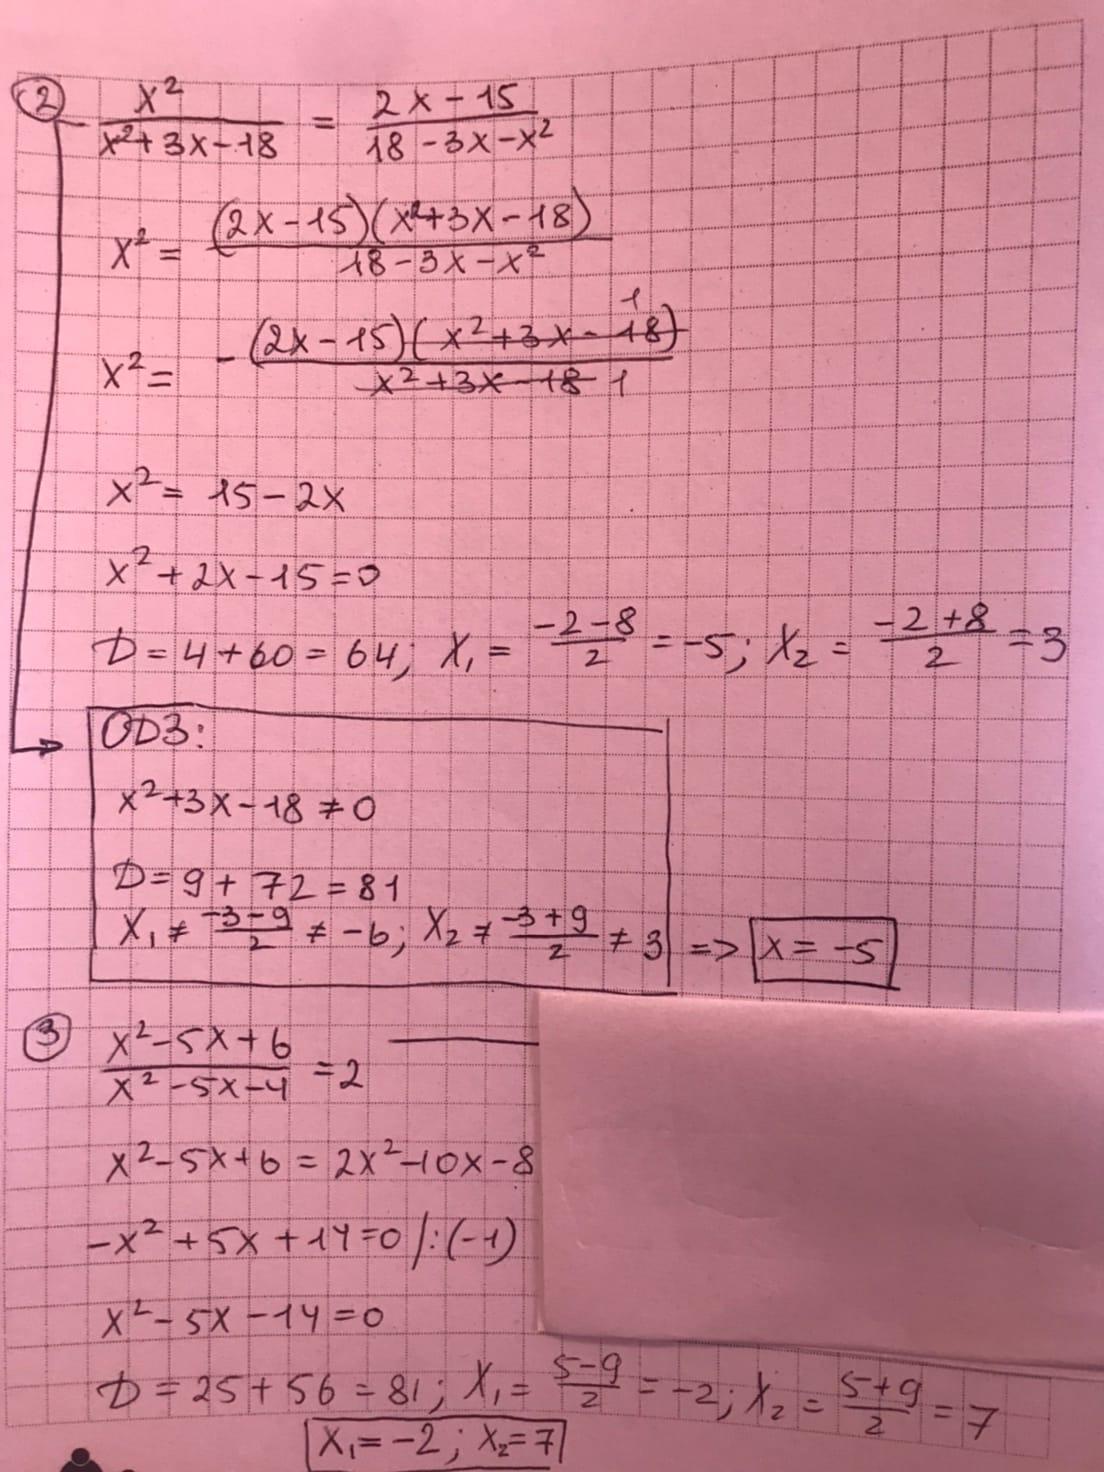 ② x²/(x²+3x-18) = (2x-15)/(18-3x-x²)
x² = (2x-15)(x²+3x-18)/(18-3x-x²)
x² = -(2x-15)(x²+3x-18) 1/(x²+3x-18) 1
x² = 15-2x
x²+2x-15=0
D=4+60=64; x₁ = (-2-8)/2 = -5; x₂ = (-2+8)/2 = 3
OD3:
x²+3x-18≠0
D=9+72=81
x₁ ≠ (-3-9)/2 ≠ -6; x₂ ≠ (-3+9)/2 ≠ 3 => x=-5
③ (x²-5x+6)/(x²-5x-4) = 2
x²-5x+6 = 2x²-10x-8
-x²+5x+14=0 /:(-1)
x²-5x-14=0
D=25+56=81; x₁ = (5-9)/2 = -2; x₂ = (5+9)/2 = 7
x₁=-2; x₂=7